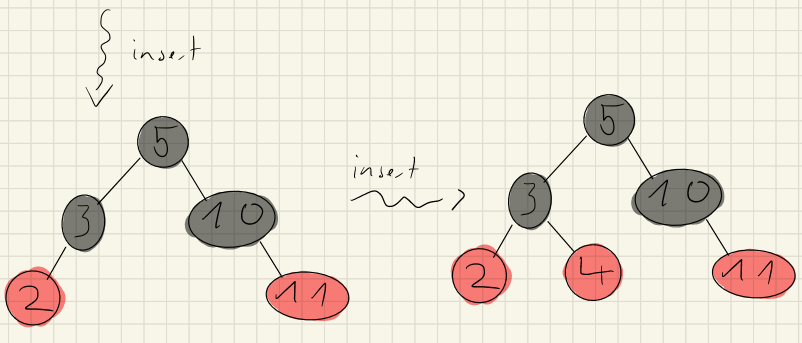 insert
5
3
10
2
11
insert
5
3
10
2
4
11